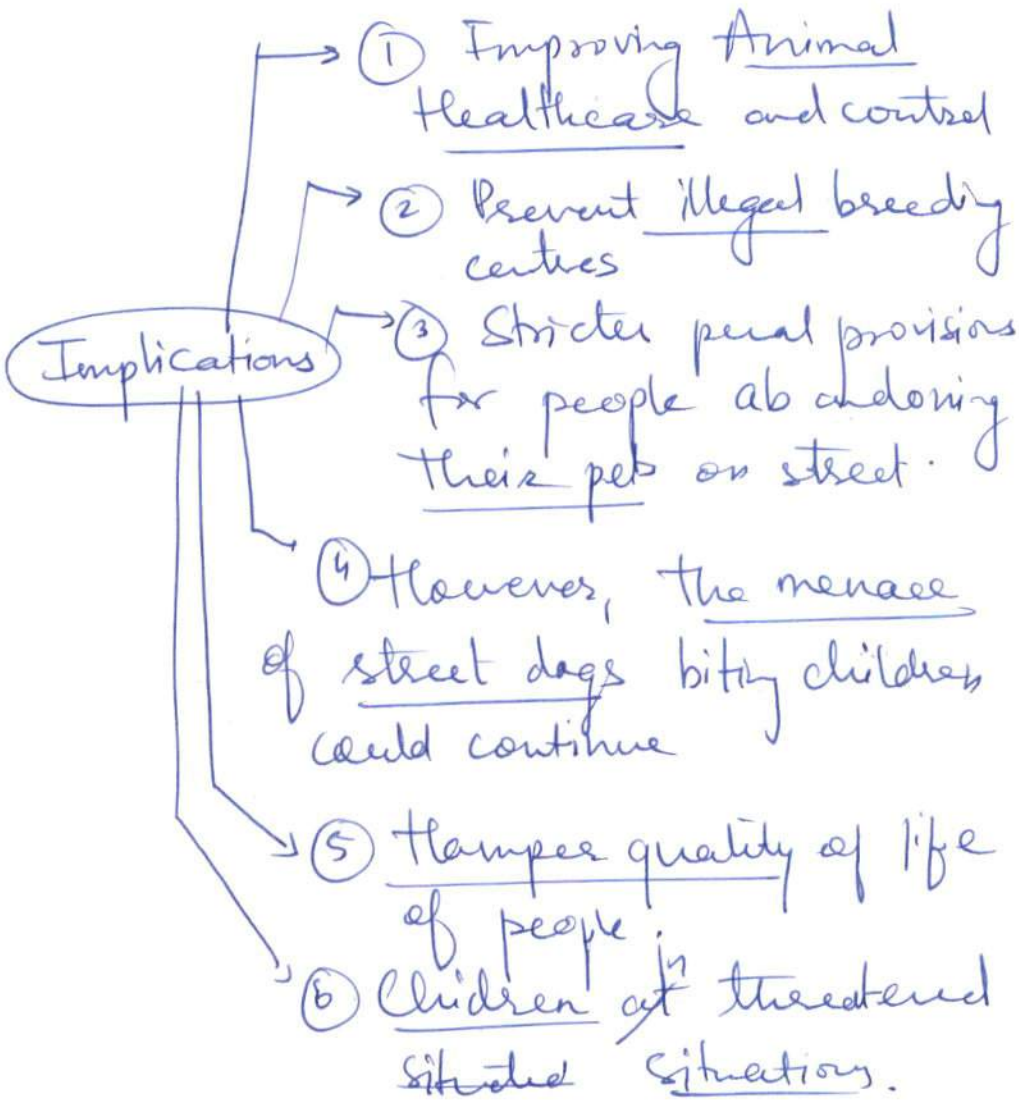 ① Improving Animal
Healthcare and control
② Prevent illegal breeding
centres
Implications
③ Stricter penal provisions
for people abandoning
their pets on street.
④ However, the menace
of street dogs biting children
could continue
⑤ Hamper quality of life
of people.
⑥ Chidren in threatened
situations.